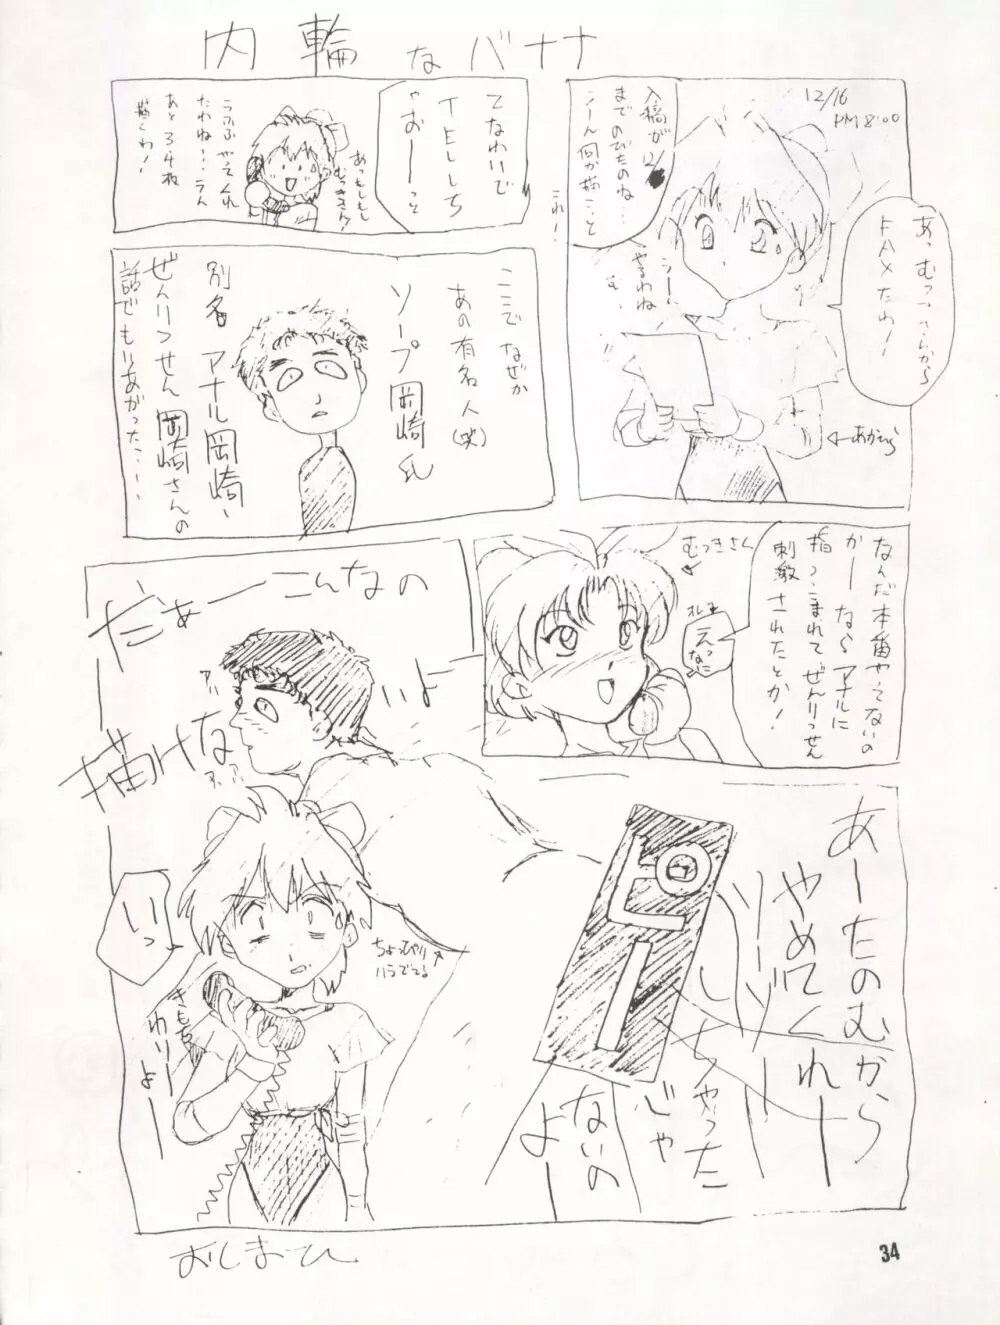 内輪なバナナ
12/16
PM 8:00
あっむつきさんから
FAXだわ!
入稿が12/
までのびたのね…
うーん何か描こっと
うー
やるわね
む
これ!
←あかすら
てなわけで
TELしち
ゃおーっと
あっもしもし
むつきさん
うえくれ
たわね!!うん
あと34枚
描くわ!
ここでなぜか
あの有名人(笑)
ソープ岡崎氏
別名アナル岡崎、
ぜんりつせん岡崎さんの
話でもりあがった…!
なんだ本番やってないの
かーならアナルに
指つっこまれてぜんりつせん
刺激されたとか!
むつきさん
えっ
なに
だぁーこんなの
描けないよー
アハ
ピー
あーたのむから
やめてくれー
ソーゾー
しちゃった
じゃ
ないの
よー
ちょっぴり
ハラでてる
いっ
きもち
わりー
よー
おしまひ
34